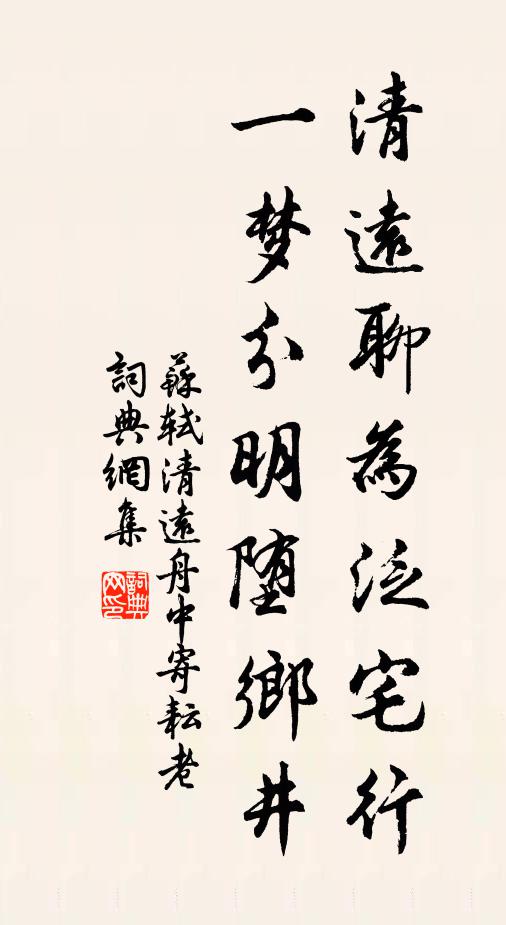 清遠聊為泛宅行
一梦分明堕鄉井
蘇轼清遠舟中寄耘老
詞典網集
詞典
网印